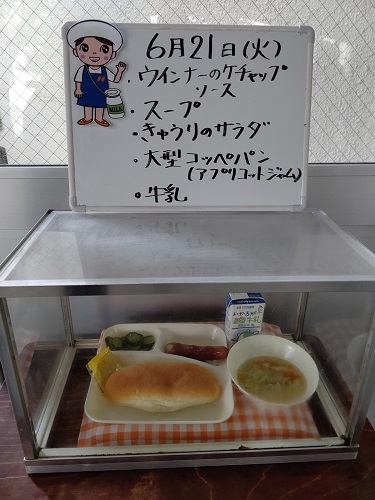 6月21日(火)
・ウインナーのケチャップ
ソース
・スープ
・きゅうりのサラダ
・大型コッペパン
(アプリコットジャム)
・牛乳
MILK
牛乳